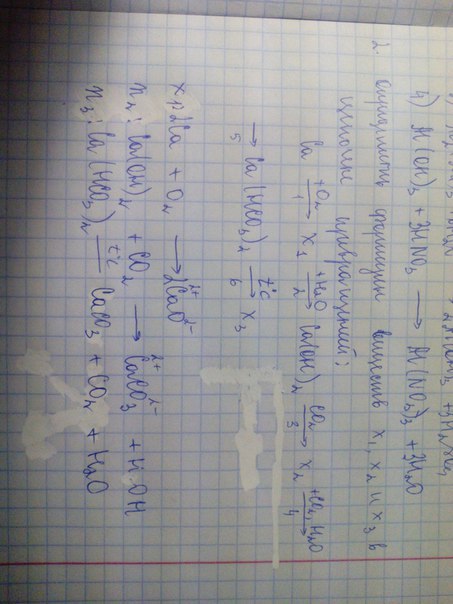 4) Al(OH)₃ + 3HNO₃ → Al(NO₃)₃ + 3H₂O
2. определить формулы веществ x₁, x₂ и x₃ в
цепочке превращений:
Ca +O₂→ 1 x₁ +H₂O→ 2 Ca(OH)₂ CO₂→ 3 x₂ +CO₂, H₂O→ 4
→ 5 Ca(HCO₃)₂ t°C→ 6 x₃
x₁: 2Ca + O₂ → 2Ca²⁺O²⁻
x₂: Ca(OH)₂ + CO₂ → Ca²⁺CO₃²⁻ + H·OH
x₃: Ca(HCO₃)₂ t°C— CaCO₃ + CO₂ + H₂O